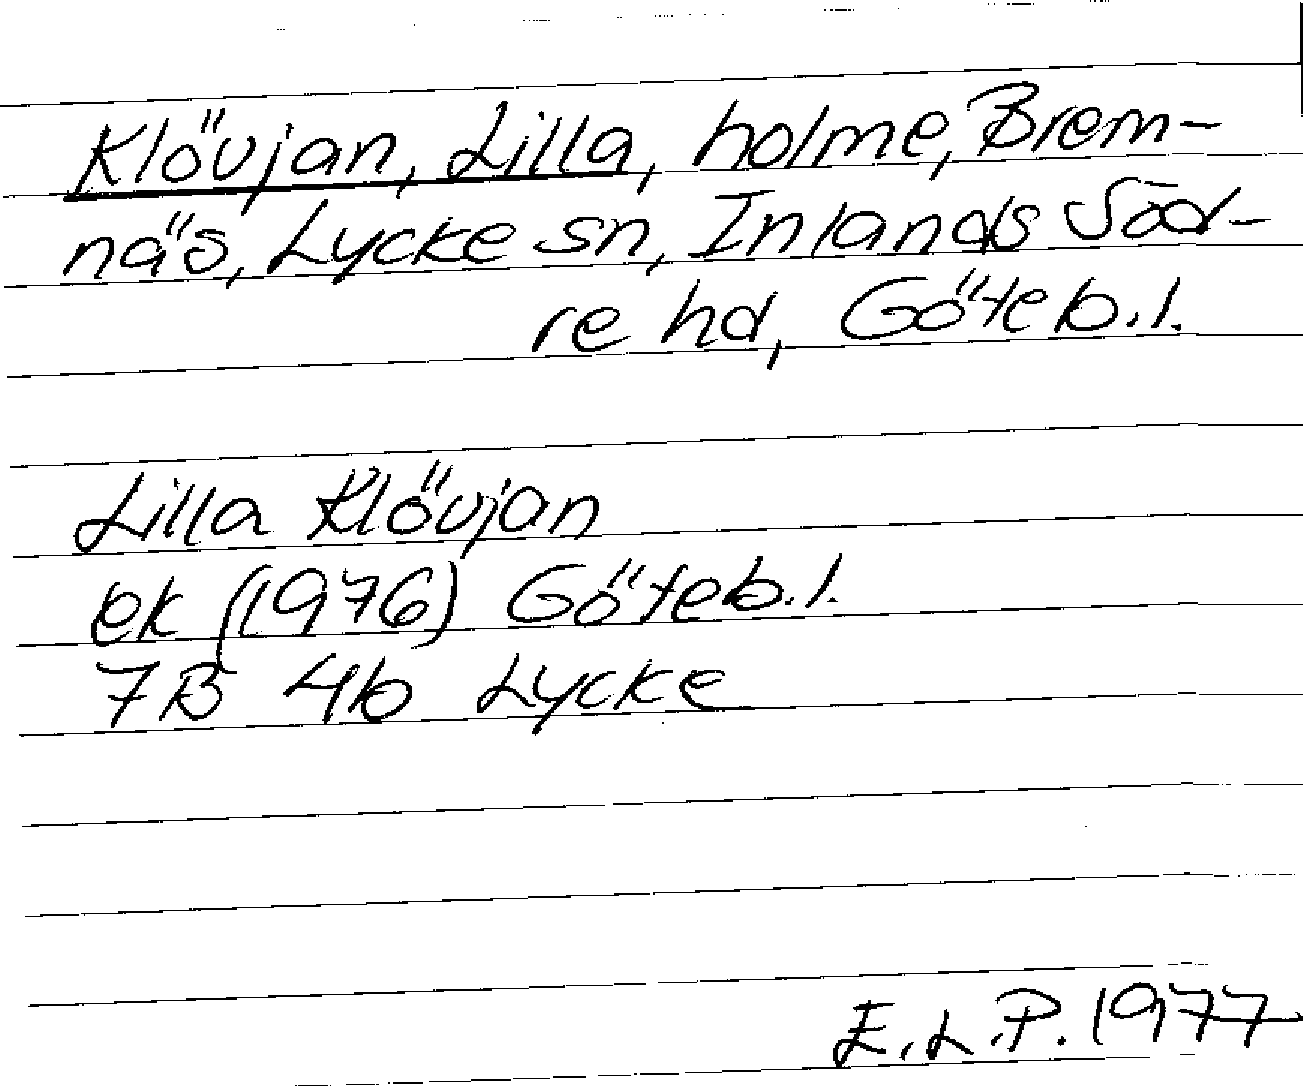 Klövjan, Lilla, holme, Brem-
näs, Lycke sn, Inlands Söd-
re hd, Göteb.l.
Lilla Klövjan
ek (1976) Göteb.l.
7B 4b Lycke
E.L.P. 1977